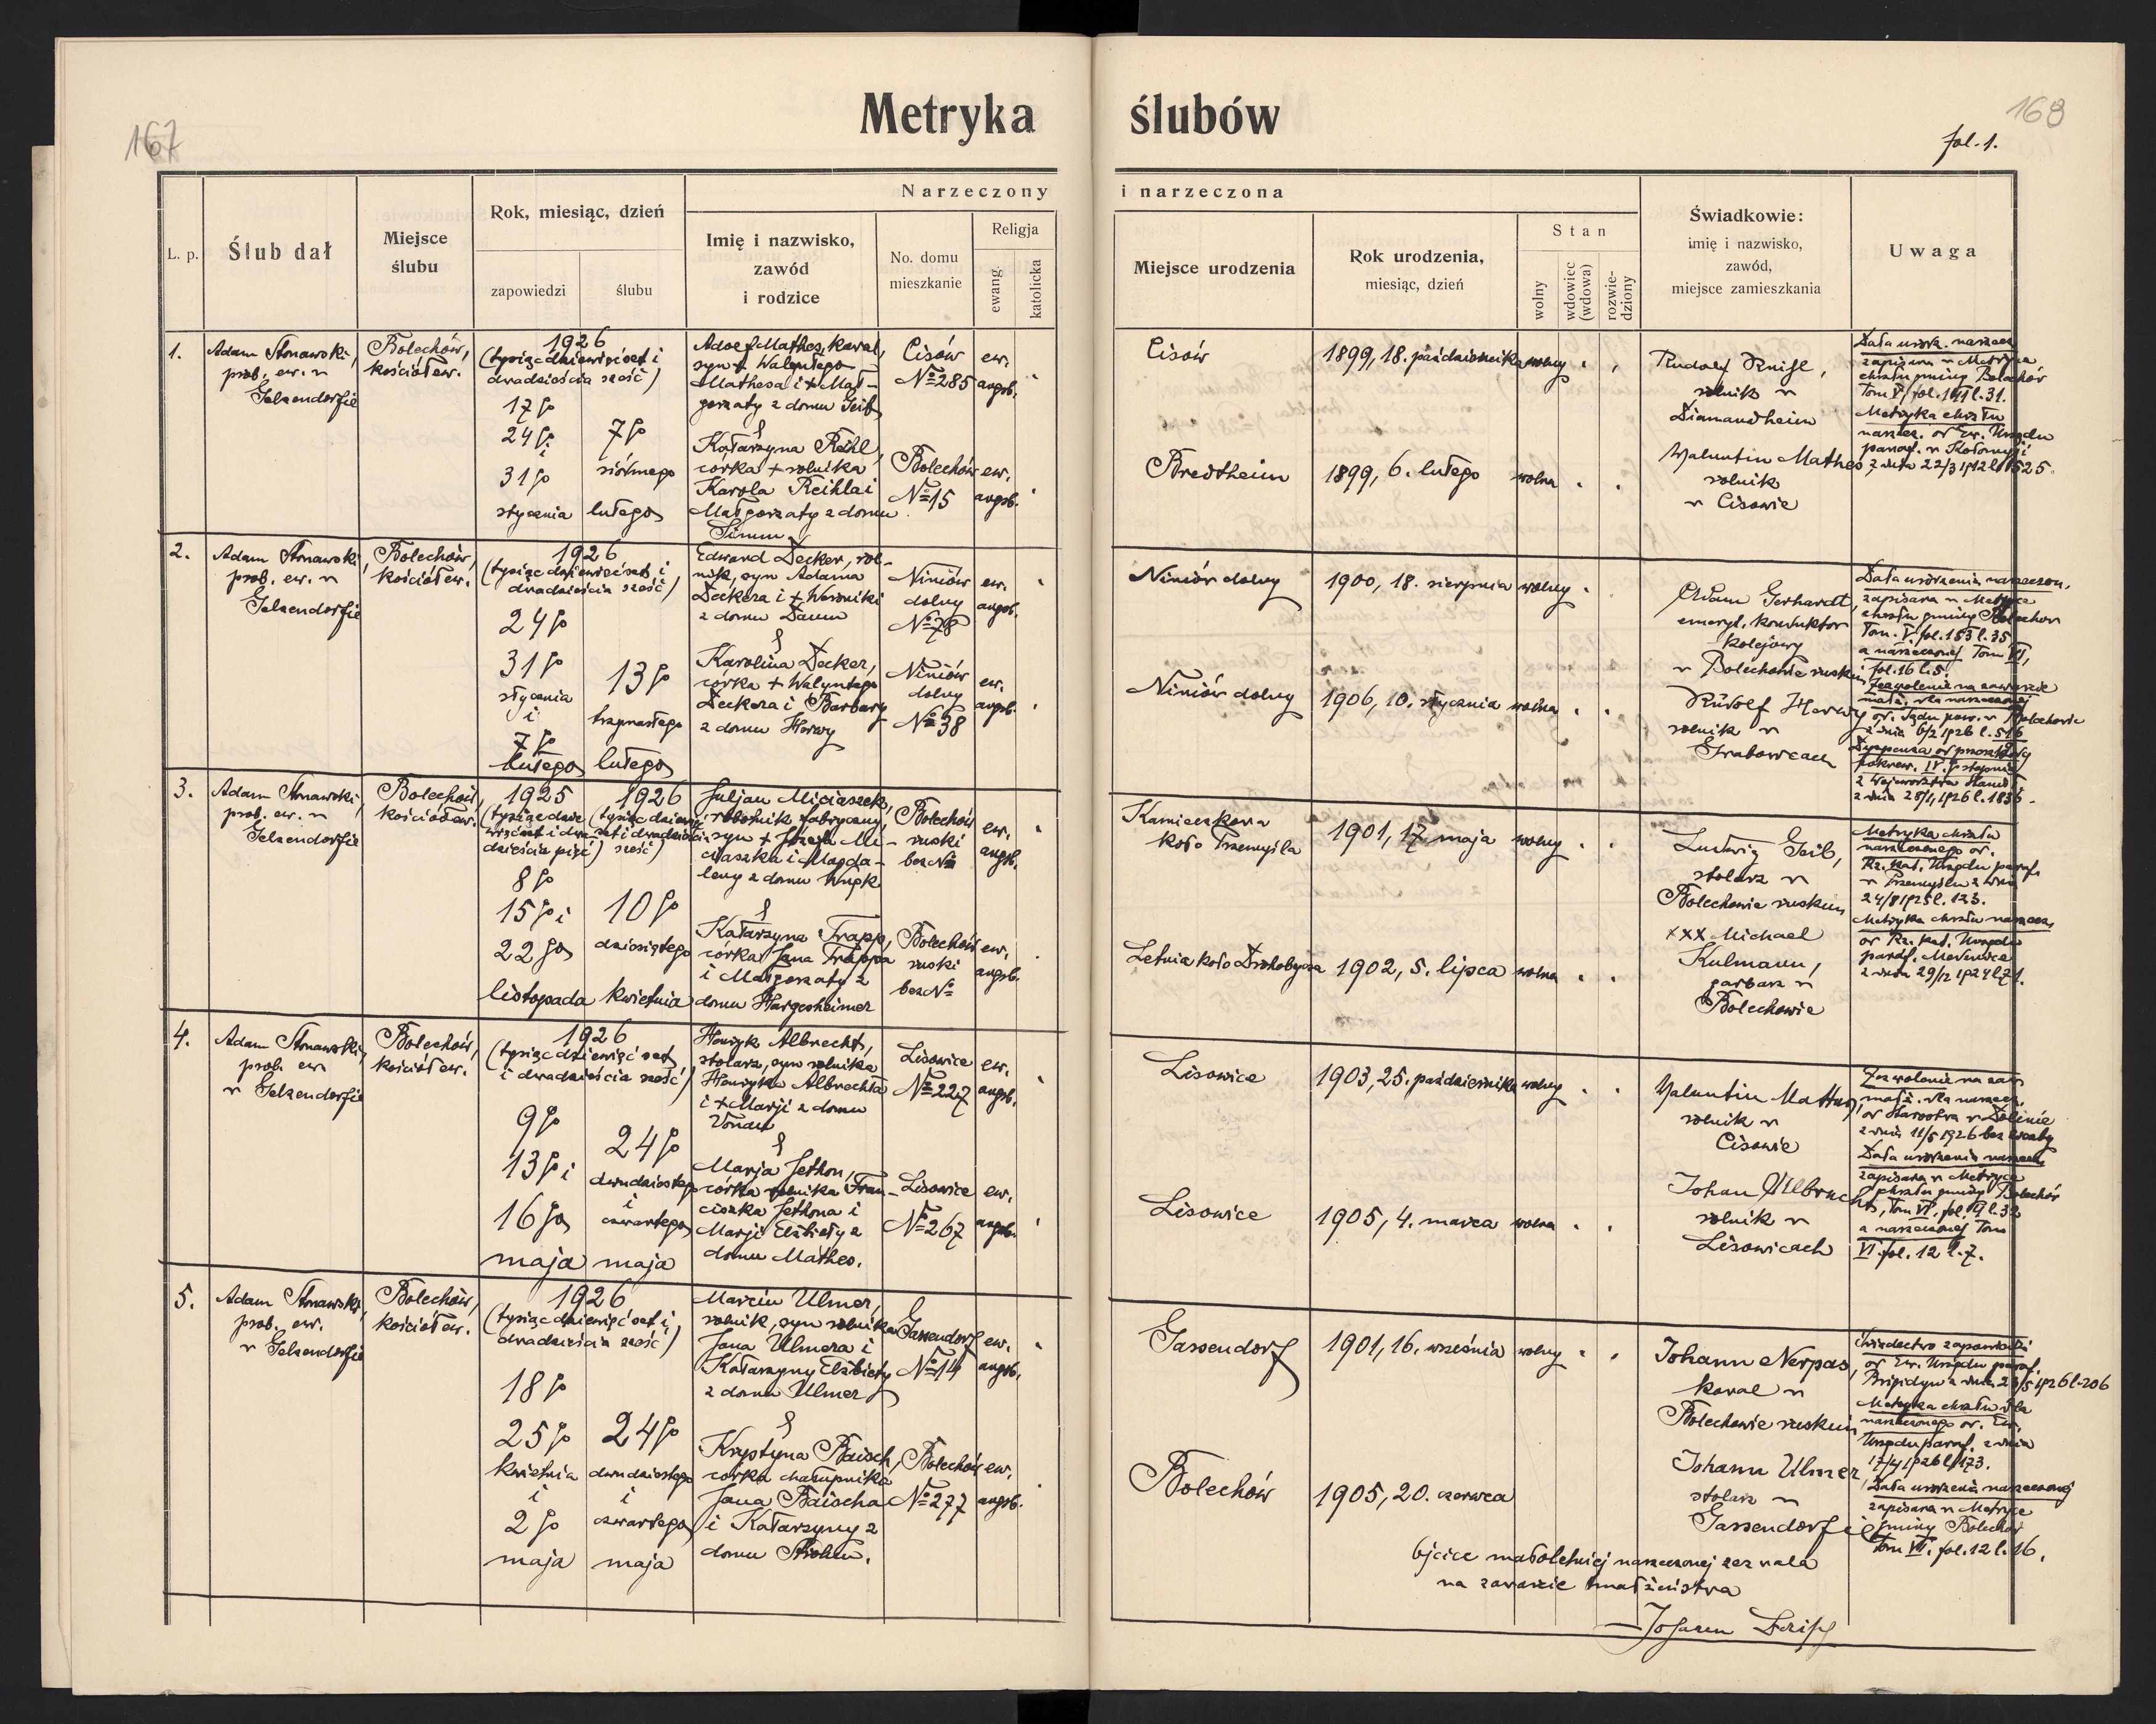 Metryka ślubów
167
168
fol. 1.
L. p.
Ślub dał
Miejsce
ślubu
Rok, miesiąc, dzień
zapowiedzi
ślubu
Narzeczony i narzeczona
Imię i nazwisko,
zawód
i rodzice
No. domu
mieszkanie
Religja
ewang.
katolicka
Miejsce urodzenia
Rok urodzenia,
miesiąc, dzień
Stan
wolny
wdowiec
(wdowa)
rozwie-
dziony
Świadkowie:
imię i nazwisko,
zawód,
miejsce zamieszkania
Uwaga
1.
Adam Stonawski,
prob. ew. w
Gelsendorfie
Bolechów,
kościół ew.
1926
(tysiąc dziewięćset i
dwadzieścia sześć)
17go
24go
i
31go
stycznia
7go
siódmego
lutego
Adolf Mathes, kowal,
syn + Walentego
Mathesa i + Mał-
gorzaty z domu Seib
§
Katarzyna Reihl,
córka + rolnika
Karola Reihla i
Małgorzaty z domu
Simm
Cisów
No 285
ew.
augsb.
Bolechów
No 15
ew.
augsb.
Cisów
1899, 18. października
wolny
Bredtheim
1899, 6. lutego
wolna
Rudolf
rolnik w
Diamandheim
Valentin Mathes,
rolnik
w Cisowie
Data urodz. narzecz.
zapisana w Metryce
chrztu gminy Bolechów
Tom V, fol. 141 l. 31.
Metryka chrztu
narzecz. od Ew. Urzędu
paraf. w Kołomyi
z dnia 22/3 1912 l. 1525.
2.
Adam Stonawski,
prob. ew. w
Gelsendorfie
Bolechów,
kościół ew.
1926
(tysiąc dziewięćset i
dwadzieścia sześć)
24go
31go
stycznia
i
7go
lutego
13go
trzynastego
lutego
Edward Decker, rol-
nik, syn Adama
Deckera i + Weroniki
z domu Daum
§
Karolina Decker,
córka + Walentego
Deckera i Barbary
z domu Herwy
Niniów
dolny
No 78
ew.
augsb.
Niniów
dolny
No 38
ew.
augsb.
Niniów dolny
1900, 18. sierpnia
wolny
Niniów dolny
1906, 10. stycznia
wolna
Adam Gerhardt,
emeryt. konduktor
kolejowy
w Bolechowie ruskim
Rudolf Herwy
rolnik w
Grabowcach
Data urodzenia narzeczon.
zapisana w Metryce
chrztu gminy Bolechów
Tom. V. fol. 153 l. 35
a narzeczonej Tom VI,
fol. 16 l. 5.
Zezwolenie na zawarcie
małż. dla narzeczonej
od Sądu pow. w Bolechowie
z dnia 6/2 1926 l. 516
Dyspensa od przeszkody
pokrew. IV. stopnia
z Województwa Stanisł.
z dnia 28/1 1926 l. 1836.
3.
Adam Stonawski,
prob. ew. w
Gelsendorfie
Bolechów,
kościół ew.
1925
(tysiąc dzie-
więćset i dwa-
dzieścia pięć)
8go
15go i
22go
listopada
1926
(tysiąc dziewię-
ćset i dwadzieścia
sześć)
10go
dziesiątego
kwietnia
Juljan Miciaszek,
robotnik fabryczny,
syn + Józefa Mi-
ciaszka i Magda-
leny z domu Wujek
§
Katarzyna Trapp,
córka Jana Trappa
i Małgorzaty z
domu Hargesheimer
Bolechów
ruski
bez No
ew.
augsb.
Bolechów
ruski
bez No
ew.
augsb.
koło Przemyśla
1901, 17. maja
wolny
Letnia koło Drohobycza
1902, 5. lipca
wolna
Ludwig Seib,
stolarz w
Bolechowie ruskim
xxx Michael
Kulmann,
garbarz w
Bolechowie
Metryka chrztu
narzeczonego od
Rz. kat. Urzędu paraf.
w Przemyślu z dnia
24/8 1925 l. 123.
Metryka chrztu narzecz.
od Rz. kat. Urzędu
paraf. Medenice
z dnia 29/12 1924 l. 71.
4.
Adam Stonawski,
prob. ew.
w Gelsendorfie
Bolechów,
kościół ew.
1926
(tysiąc dziewięćset
i dwadzieścia sześć)
9go
13go i
16go
maja
24go
dwudziestego
i
czwartego
maja
Henryk Albrecht,
stolarz, syn rolnika
Henryka Albrechta
i + Marji z domu
Vonau
§
Marja Jethon,
córka rolnika Fran-
ciszka Jethona i
Marji Elżbiety z
domu Mathes.
Lisowice
No 227
ew.
augsb.
Lisowice
No 267
ew.
augsb.
Lisowice
1903, 25. października
wolny
Lisowice
1905, 4. marca
wolna
Valentin Mathes,
rolnik w
Cisowie
Johan Albrecht,
rolnik w
Lisowicach
Zezwolenie na zaw.
małż. dla narzecz.
od Starostwa w Dolinie
z dnia 11/5 1926 bez liczby
Data urodzenia narzecz.
zapisana w Metryce
chrztu gminy Bolechów
Tom VI, fol. 9 l. 32
a narzeczonej Tom
VI. fol. 12 l. 7.
5.
Adam Stonawski,
prob. ew.
w Gelsendorfie
Bolechów,
kościół ew.
1926
(tysiąc dziewięćset i
dwadzieścia sześć)
18go
25go
kwietnia
i
2go
maja
24go
dwudziestego
i
czwartego
maja
Marcin Ulmer,
rolnik, syn rolnika
Jana Ulmera i
Katarzyny Elżbiety
z domu Ulmer
§
Krystyna Baisch,
córka chałupnika
Jana Baischa
i Katarzyny z
domu Strohm.
Gassendorf
No 14
ew.
augsb.
Bolechów
No 277
ew.
augsb.
Gassendorf
1901, 16. września
wolny
Bolechów
1905, 20. czerwca
Johann Nerpas,
kowal w
Bolechowie ruskim
Johann Ulmer,
stolarz w
Gassendorfie
Świadectwo zapowiedzi
od Ew. Urzędu paraf.
Brigidyn z dnia 23/5 1926 l. 206
Metryka chrztu dla
narzeczonego od Ew.
Urzędu paraf. z dnia
17/4 1926 l. 173.
Data urodzenia narzeczonej
zapisana w Metryce
gminy Bolechów
Tom VI. fol. 12 l. 16.
Ojciec małoletniej narzeczonej zezwala
na zawarcie małżeństwa
Johann